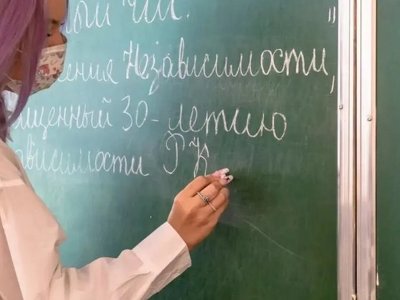 ый час.
ения Независимости,"
щенный 30-летию
ависимости РК